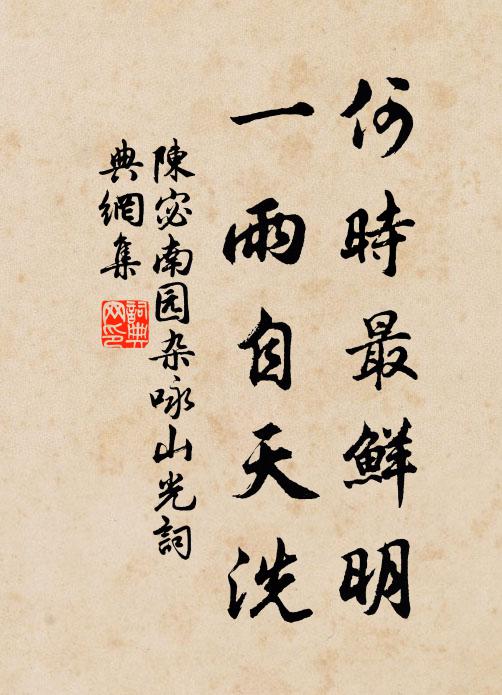 何時最鮮明
一雨自天洗
陳宓南园杂咏山光詞
典網集
詞典网印